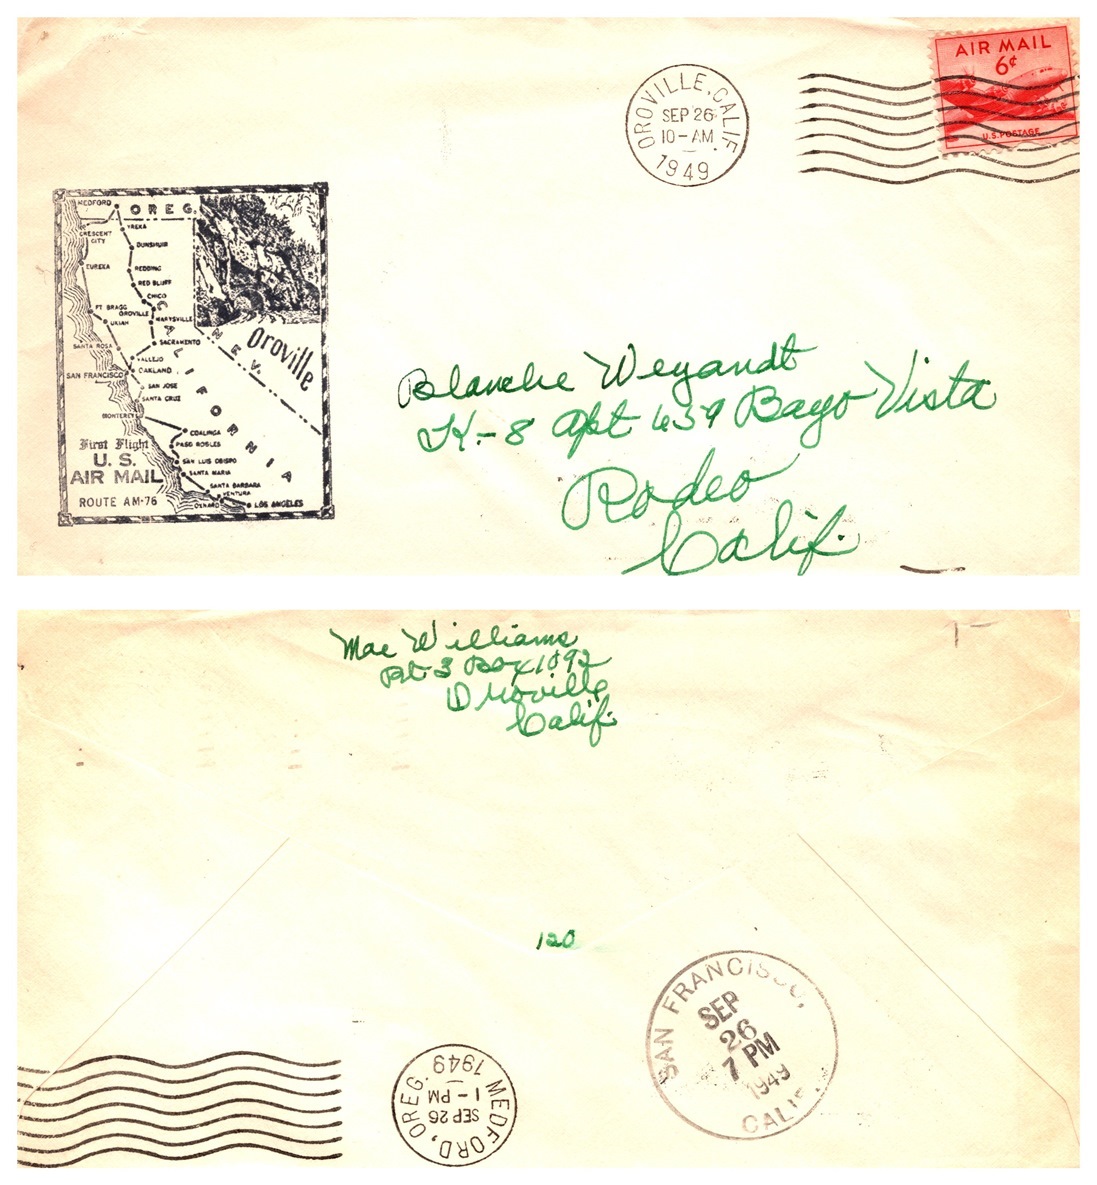 AIR MAIL
6¢
U.S. POSTAGE
OROVILLE, CALIF.
SEP 26
10-AM
1949
MEDFORD
OREG.
CRESCENT
CITY
YREKA
DUNSMUIR
EUREKA
REDDING
RED BLUFF
CHICO
FT BRAGG
OROVILLE
UKIAH
MARYSVILLE
SANTA ROSA
SACRAMENTO
VALLEJO
SAN FRANCISCO
OAKLAND
SAN JOSE
SANTA CRUZ
MONTEREY
COALINGA
PASO ROBLES
SAN LUIS OBISPO
SANTA MARIA
SANTA BARBARA
VENTURA
OXNARD
LOS ANGELES
CALIFORNIA
NEV.
Oroville
First Flight
U. S.
AIR MAIL
ROUTE AM-76
Blanche Weyandt
K-8 Apt 639 Bayo Vista
Rodeo
Calif.
Mae Williams
Rt 3 Box 1892
Oroville
Calif.
120
SAN FRANCISCO,
SEP
26
7 PM
1949
CALIF.
MEDFORD, OREG.
SEP 26
1-PM
1949